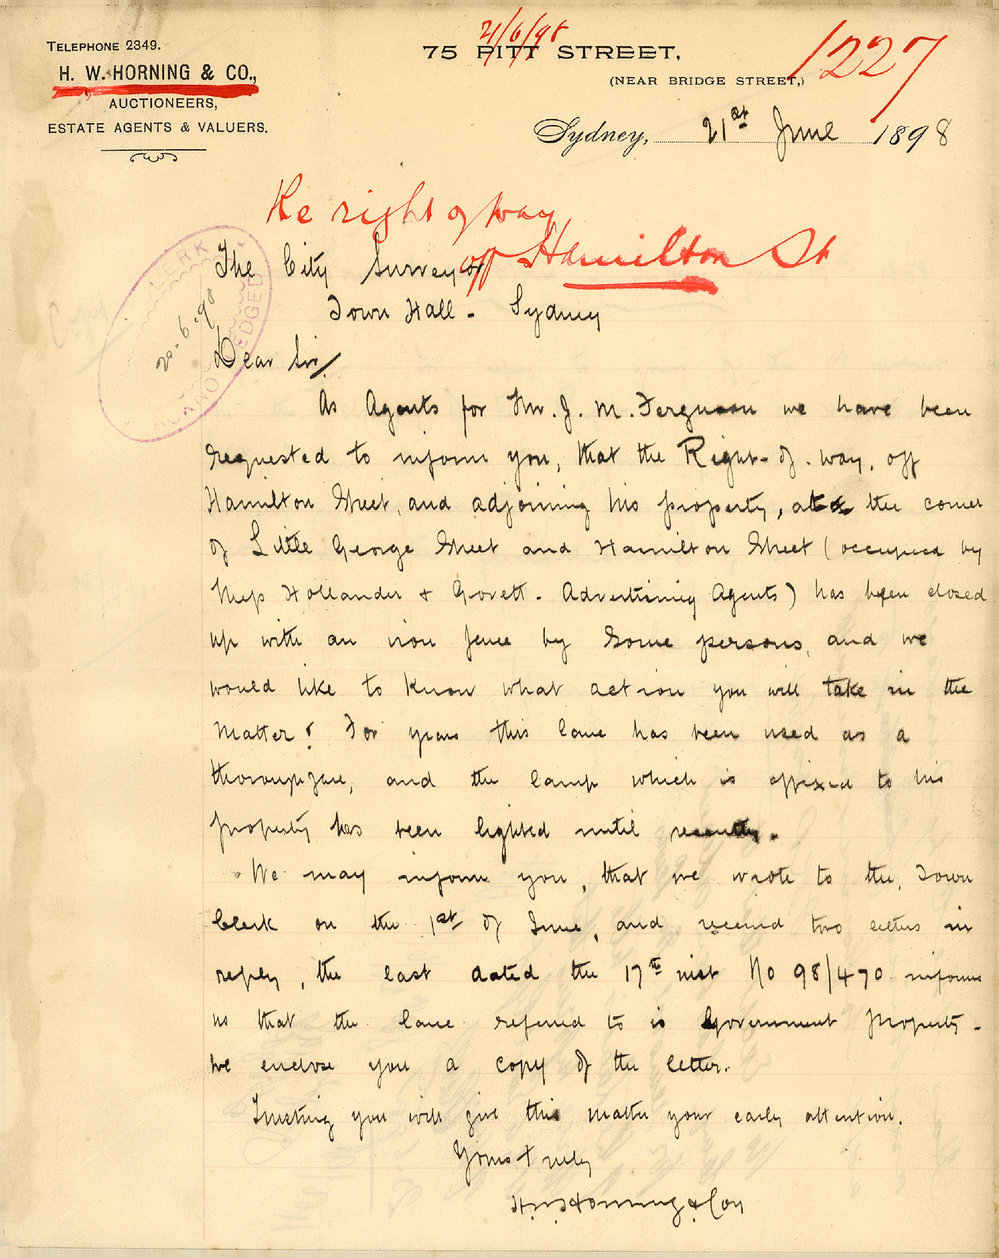 TELEPHONE 2349.
H. W. HORNING & CO.,
AUCTIONEERS,
ESTATE AGENTS & VALUERS.
21/6/98
75 PITT STREET,
(NEAR BRIDGE STREET,)
1227
Sydney, 21st June 1898
Re right of way
off Hamilton St
CLERK
20.6.98
ACKNOWLEDGED
Copy
The City Surveyor
Town Hall - Sydney
Dear Sir/
As Agents for Mr. J. M. Ferguson we have been
requested to inform you, that the Right-of-way, off
Hamilton Street, and adjoining his property, at the corner
of Little George Street and Hamilton Street (occupied by
Mess Hollander & Govett - Advertising Agents) has been closed
up with an iron fence by some persons, and we
would like to know what action you will take in the
matter? For years this lane has been used as a
thoroughfare, and the lamp which is affixed to his
property has been lighted until recently.
We may inform you, that we wrote to the Town
Clerk on the 1st of June, and received two letters in
reply, the last dated the 17th inst No 98/470 informs
us that the lane referred to is Government property-
We enclose you a copy of the letter.
Trusting you will give this matter your early attention.
Yours truly
H.W. Horning & Coy